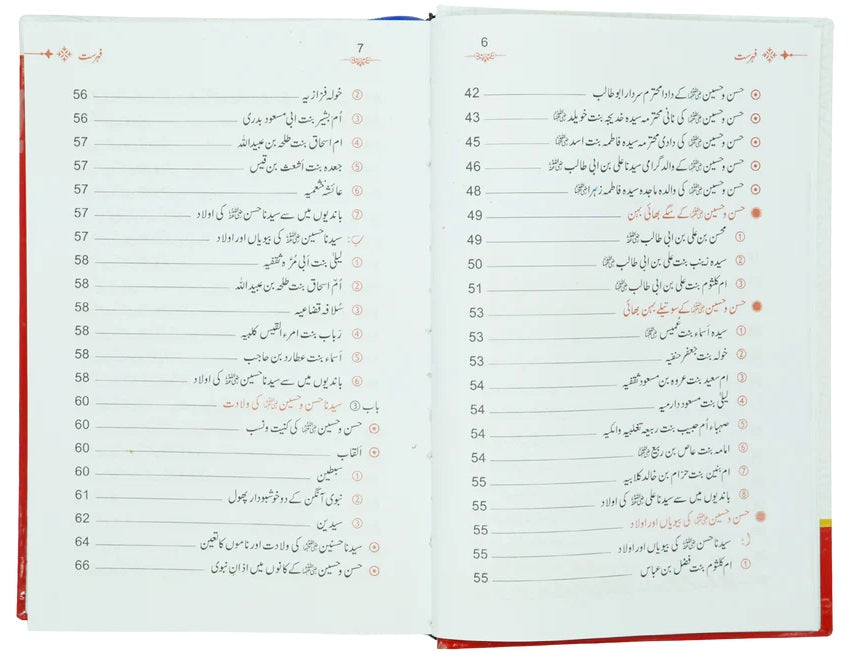 6 فہرست
حسن و حسین رضی اللہ عنہما کے دادا محترم سردار ابو طالب 42
حسن و حسین رضی اللہ عنہما کی نانی محترمہ سیدہ خدیجہ بنت خویلد رضی اللہ عنہا 43
حسن و حسین رضی اللہ عنہما کی دادی محترمہ سیدہ فاطمہ بنت اسد رضی اللہ عنہا 45
حسن و حسین رضی اللہ عنہما کے والد گرامی سیدنا علی بن ابی طالب رضی اللہ عنہ 46
حسن و حسین رضی اللہ عنہما کی والدہ ماجدہ سیدہ فاطمہ زہرا رضی اللہ عنہا 48
حسن و حسین رضی اللہ عنہما کے سگے بھائی بہن 49
① محسن بن علی بن ابی طالب رضی اللہ عنہ 49
② سیدہ زینب بنت علی بن ابی طالب رضی اللہ عنہا 50
③ ام کلثوم بنت علی بن ابی طالب رضی اللہ عنہا 51
حسن و حسین رضی اللہ عنہما کے سوتیلے بہن بھائی 53
① سیدہ اَسماء بنت عُمیس رضی اللہ عنہا 53
② خولہ بنت جعفر حنفیہ 53
③ ام سعید بنت عروہ بن مسعود ثقفیہ 54
④ لیلیٰ بنت مسعود دارمیہ 54
⑤ صہباء اُم حبیب بنت ربیعہ تغلبیہ وائلیہ 54
⑥ امامہ بنت عاص بن ربیع رضی اللہ عنہا 54
⑦ ام بنین بنت حزام بن خالد کلابیہ 55
⑧ باندیوں میں سے سیدنا علی رضی اللہ عنہ کی اولاد 55
حسن و حسین رضی اللہ عنہما کی بیویاں اور اولاد 55
(: سیدنا حسن رضی اللہ عنہ کی بیویاں اور اولاد 55
① ام کلثوم بنت فضل بن عباس 55
7 فہرست
② خولہ فزاریہ 56
③ اُم بشیر بنت ابی مسعود بدری 56
④ ام اسحاق بنت طلحہ بن عبیداللہ 57
⑤ جعدہ بنت اَشعث بن قیس 57
⑥ عائشہ خثعمیہ 57
⑦ باندیوں میں سے سیدنا حسن رضی اللہ عنہ کی اولاد 57
ب: سیدنا حسین رضی اللہ عنہ کی بیویاں اور اولاد 57
① لیلیٰ بنت اَبی مُرّہ ثقفیہ 58
② اُمّ اسحاق بنت طلحہ بن عبیداللہ 58
③ سُلافہ قضاعیہ 58
④ رَباب بنت امرء القیس کلبیہ 58
⑤ اَسماء بنت عطارد بن حاجب 58
⑥ باندیوں میں سے سیدنا حسین رضی اللہ عنہ کی اولاد 58
باب ③ سیدنا حسن و حسین رضی اللہ عنہما کی ولادت 60
حسن و حسین رضی اللہ عنہما کی کنیت و نسب 60
اَلقاب 60
① سبطین 60
② نبوی آنگن کے دو خوشبودار پھول 61
③ سیدین 62
سیدنا حسنین رضی اللہ عنہما کی ولادت اور ناموں کا تعین 64
حسن و حسین رضی اللہ عنہما کے کانوں میں اذانِ نبوی 66